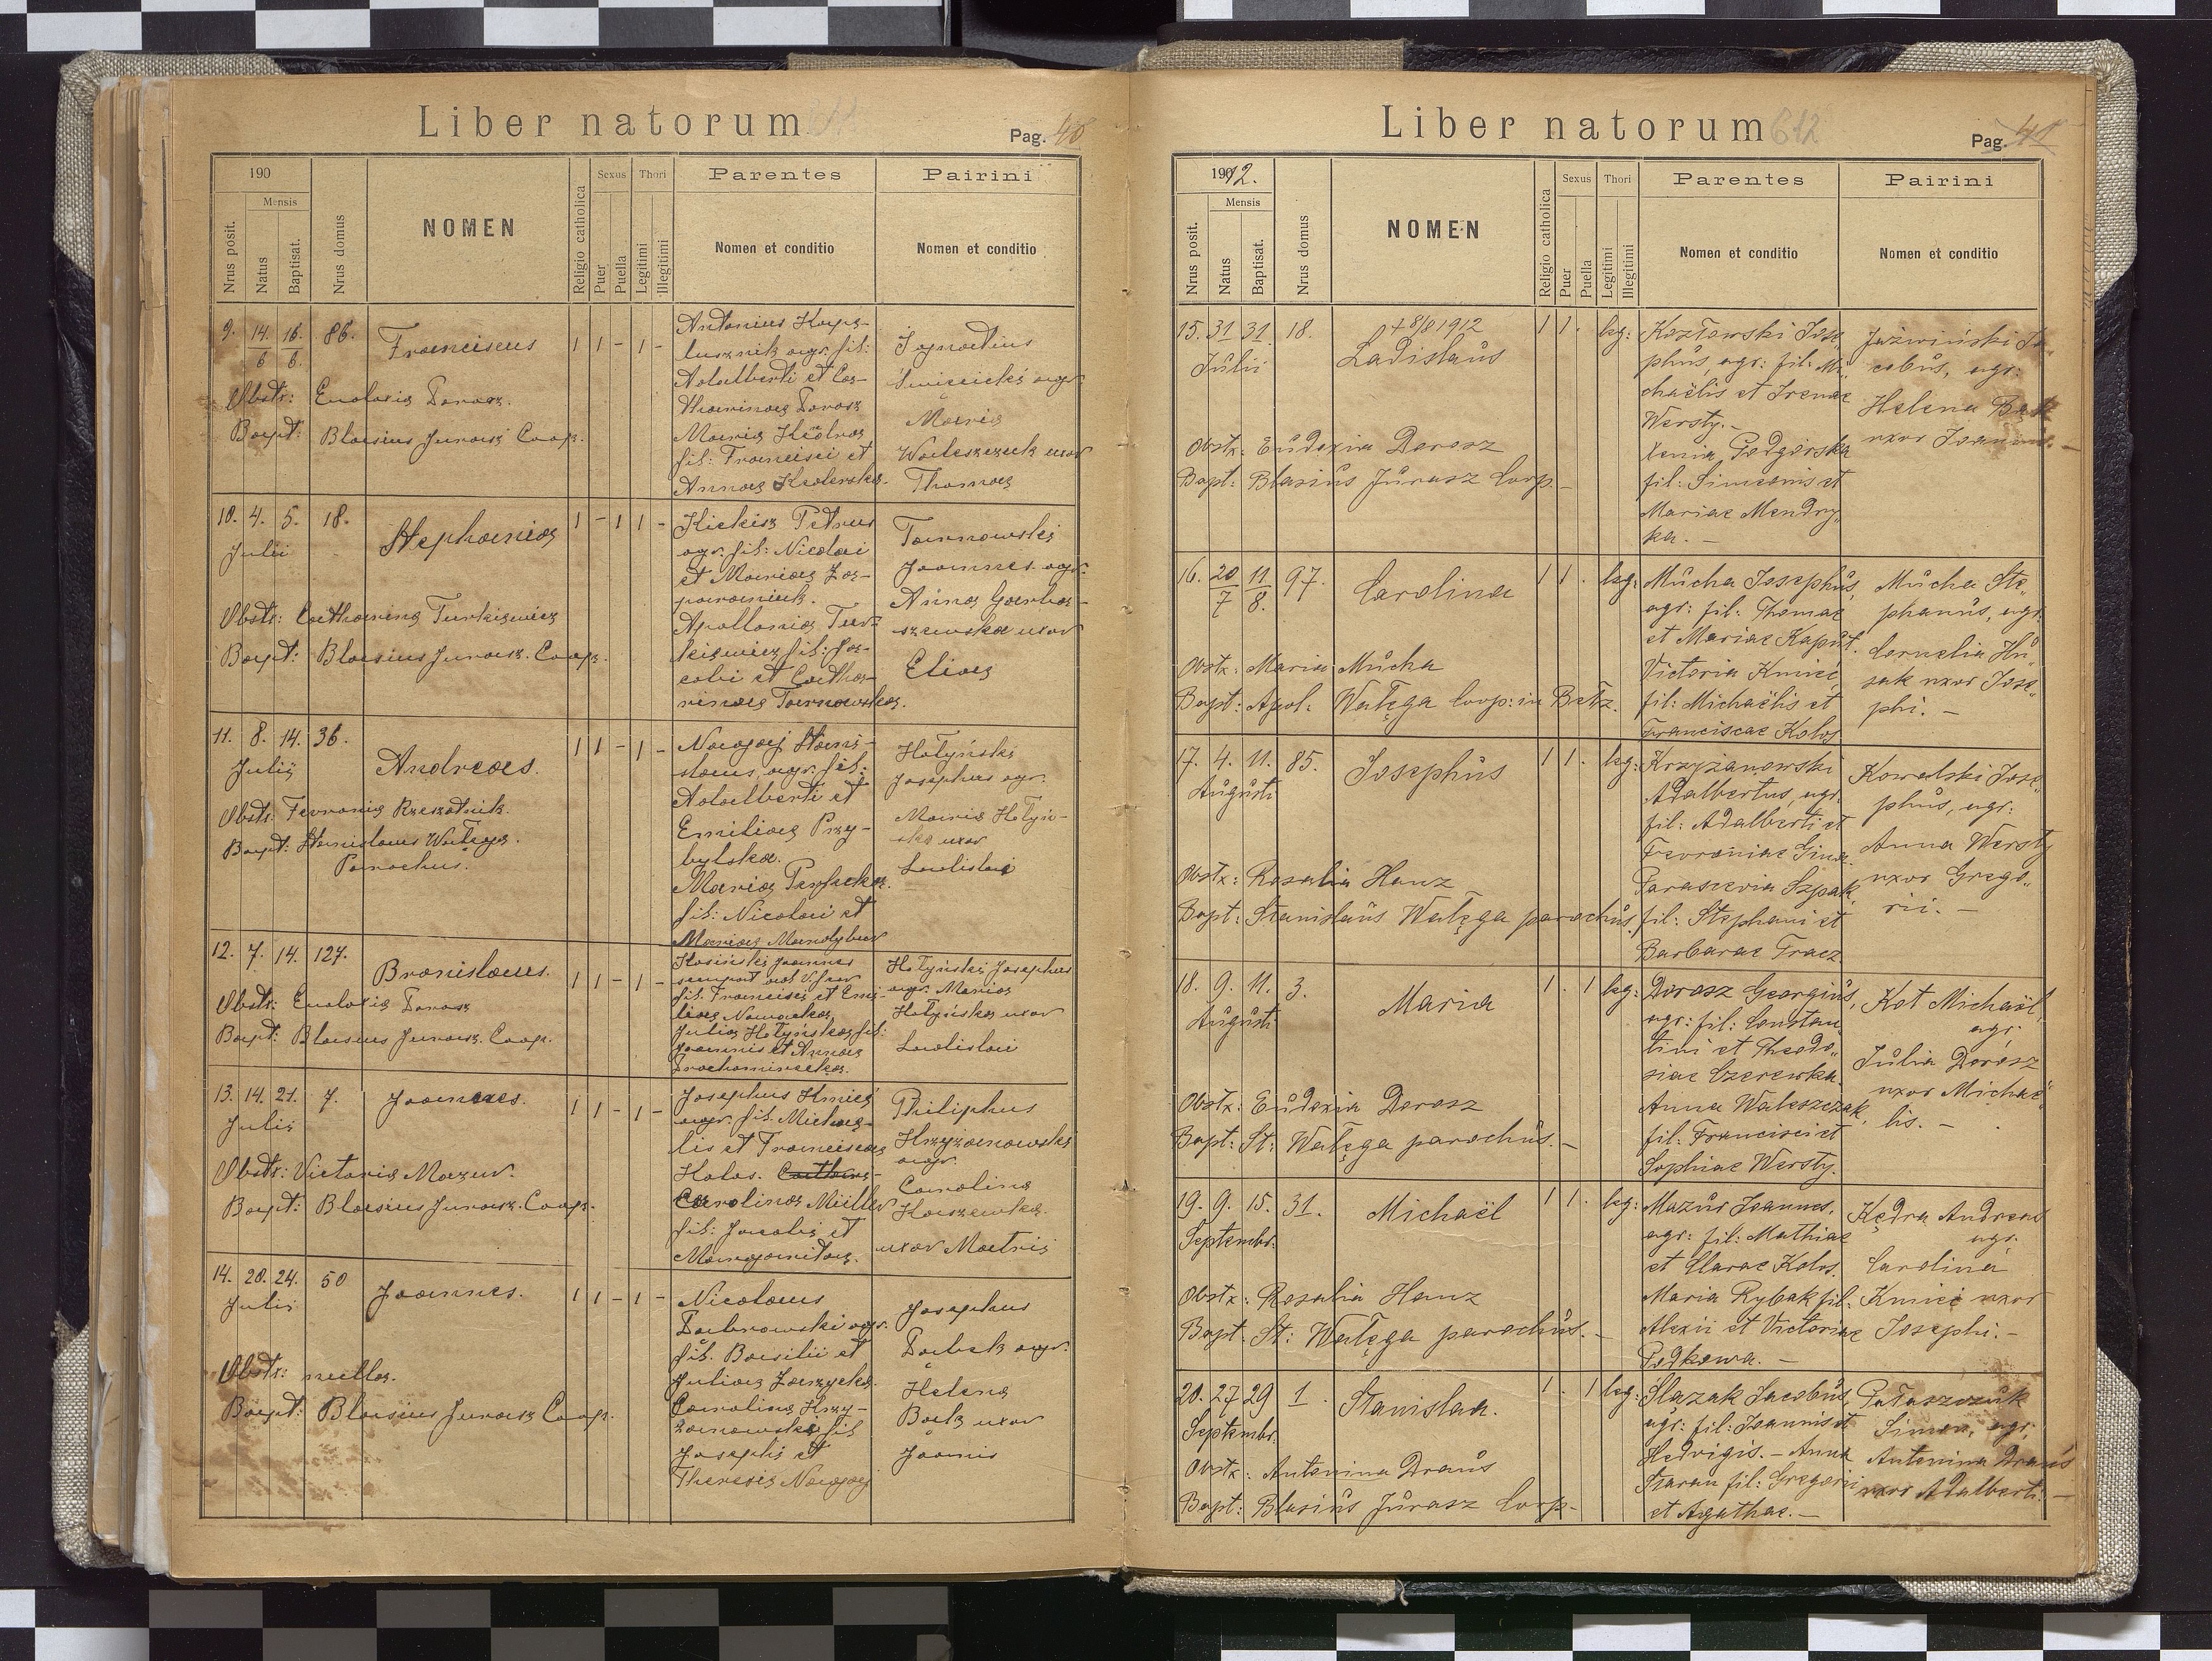 Liber natorum
Pag. 40
190
Mensis
Nrus posit.
Natus
Baptisat.
Nrus domus
NOMEN
Religio catholica
Sexus
Puer
Puella
Thori
Legitimi
Illegitimi
Parentes
Nomen et conditio
Pairini
Nomen et conditio
9. 14/6 16/6. 86. Franciscus 1 1 - 1 -
Obstr: Eudoxia Dorosz.
Bapt: Blasius Jurasz Coop.
Antonius Kape-
lusznik agr. fil:
Adalberti et Ca-
tharinae Dorosz
Maria Kędra
fil: Francisci et
Annae Krolewska.
Ignatius
Święcicki agr
Maria
Waleszczuk uxor
Thomae
10. 4. 5. 18. Stephania 1 - 1 1 -
Julii
Obstr: Catharina Turkiewicz
Bapt: Blasius Jurasz. Coop.
Kiekisz Petrus
agr. fil: Nicolai
et Mariae Za-
paraniuk.
Apollonia Tur-
kiewicz fil: Ja-
cobi et Catha-
rinae Tarnowska.
Tarnowski
Joannes agr.
Anna Garba-
szewska uxor
Eliae
11. 8. 14. 36. Andreas. 1 1 - 1 -
Julii
Obstr: Fevronia Rzeszotnik.
Bapt: Stanislaus Watęga.
Parochus.
Nogaj Stani-
slaus agr. fil:
Adalberti et
Emiliae Przy-
bylska.
Maria
fil: Nicolai et
Mariae Mandybur
Hołyński
Josephus agr.
Maria Hołyń-
ska uxor
Ladislai
12. 7. 14. 127. Bronislaus. 1 1 - 1 -
Obstr: Eudoxia Dorosz
Bapt: Blasius Jurasz. Coop.
Kosiński Joannes
fil. Francisci et Emi-
liae Nowacka
Julia Hołyńska fil:
Joannis et Annae
Hołyński Josephus
agr. Maria
Hołyńska uxor
Ladislai
13. 14. 21. 7. Joannes. 1 1 - 1 -
Julii
Obstr: Victoria Mazur.
Bapt: Blasius Jurasz. Coop.
Josephus Kmieć
agr. fil. Michae-
lis et Franciscae
Kolos.
Carolina Müller
fil: Jacobi et
Margaritae.
Philiphus
Krzyżanowski
agr.
Carolina
Haszewska.
uxor Matrii
14. 20. 24. 50 Joannes. 1 1 - 1 -
Julii
Obstr: nulla.
Bapt: Blasius Jurasz Coop.
Nicolaus
Dąbrowski agr.
fil. Basilii et
Juliae Zarzycka.
Carolina Krzy-
żanowska fil
Josephi et
Theresia Nogaj
Josephus
Dąbek agr.
Helena
Bąk uxor
Joannis
Liber natorum 612
Pag. 41
1912.
Mensis
Nrus posit.
Natus
Baptisat.
Nrus domus
NOMEN
Religio catholica
Sexus
Puer
Puella
Thori
Legitimi
Illegitimi
Parentes
Nomen et conditio
Pairini
Nomen et conditio
15. 31 31. 18. † 8/8 1912 1 1. leg:
Julii Ladislaus
Obstx: Eudoxia Dorosz
Bapt: Blasius Jurasz Corp.-
Kozłowski Jose„
phus, agr: fil: Mi„
chaëlis et Irenae
Wersty.-
Xenia Podgórska
fil: Simeonis et
Mariae Mendry„
ka.-
Jaźwiński Ja„
cobus, agr:
Helena Bąk
uxor Joannis.-
16. 20/7 11/8. 97. Carolina 1 1. leg:
Obstx: Maria Mucha
Bapt: Apol: Watęga Coop: in Bełz.
Mucha Josephus,
agr: fil: Thomae
et Mariae Kaput.
Victoria Kmieć,
fil: Michaëlis et
Franciscae Kolos
Mucha Ste„
phanus, agr.
Cornelia Hu„
sak uxor Jose„
phi.-
17. 4. 11. 85. Josephus 1 1. leg:
Augusti
Obstx: Rosalia Hanz
Bapt: Stanislaus Watęga parochus.
Krzyżanowski
Adalbertus, agr.
fil: Adalberti et
Fevroniae
Parascevia Szpak,
fil: Stephani et
Barbarae Tracz
Kowalski Jose„
phus, agr:
Anna Wersty
uxor Grego„
rii.-
18. 9. 11. 3. Maria 1. 1 leg:
Augusti
Obstx: Eudoxia Dorosz
Bapt: St: Watęga parochus.-
Dorosz Georgius,
agr: fil: Constan„
tini et Theodo„
siae Czerewka.
Anna Waleszczak,
fil: Francisci et
Sophiae Wersty.
Kot Michaël,
agr:
Julia Dorosz
uxor Michaë„
lis.-
19. 9. 15. 31. Michaël 1 1. leg:
Septembr.
Obstx: Rosalia Hanz
Bapt. St: Watęga parochus.-
Mazur Joannes,
agr: fil: Mathiae
et Clarae Kolos.
Maria Rybak fil:
Alexii et Victoriae
Podkowa.-
Kędra Andreas
agr.
Carolina
Kmieć uxor
Josephi.-
20. 27 29 1. Stanislaa. 1. 1 leg:
Septembr.
Obstx: Antonina Draus
Bapt: Blasius Jurasz Corp-
Slazak Jacobus,
agr: fil: Joannis et
Hedvigis.- Anna
Baran fil: Gregorii
et Agathae.-
Simon, agr:
Antonina Draus
uxor Adalberti.-